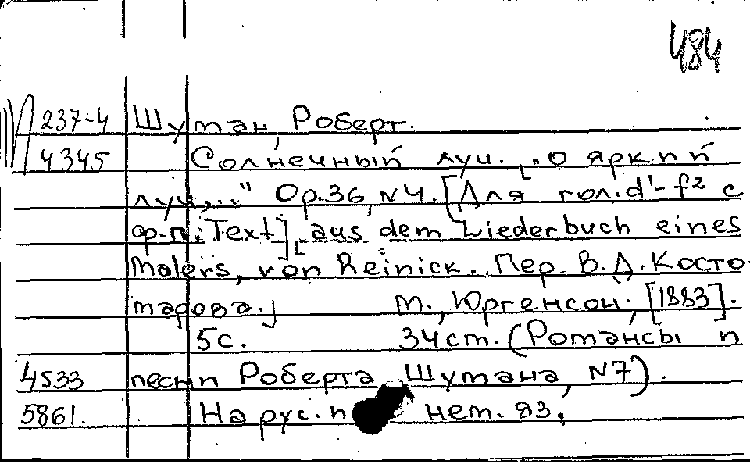 484
П 237-4 Шуман, Роберт.
4345 Солнечный луч. „О яркий
луч..." Op.36, N4. [Для гол. d¹-f² с
ф-п.: Text] [aus dem Liederbuch eines
Malers, von Reinick. Пер. В.Д. Косто-
марова.] М., Юргенсон, [1883].
5с. 34см. (Романсы и
4533 песни Роберта Шумана, N7).
5861. На рус. и нем. яз.